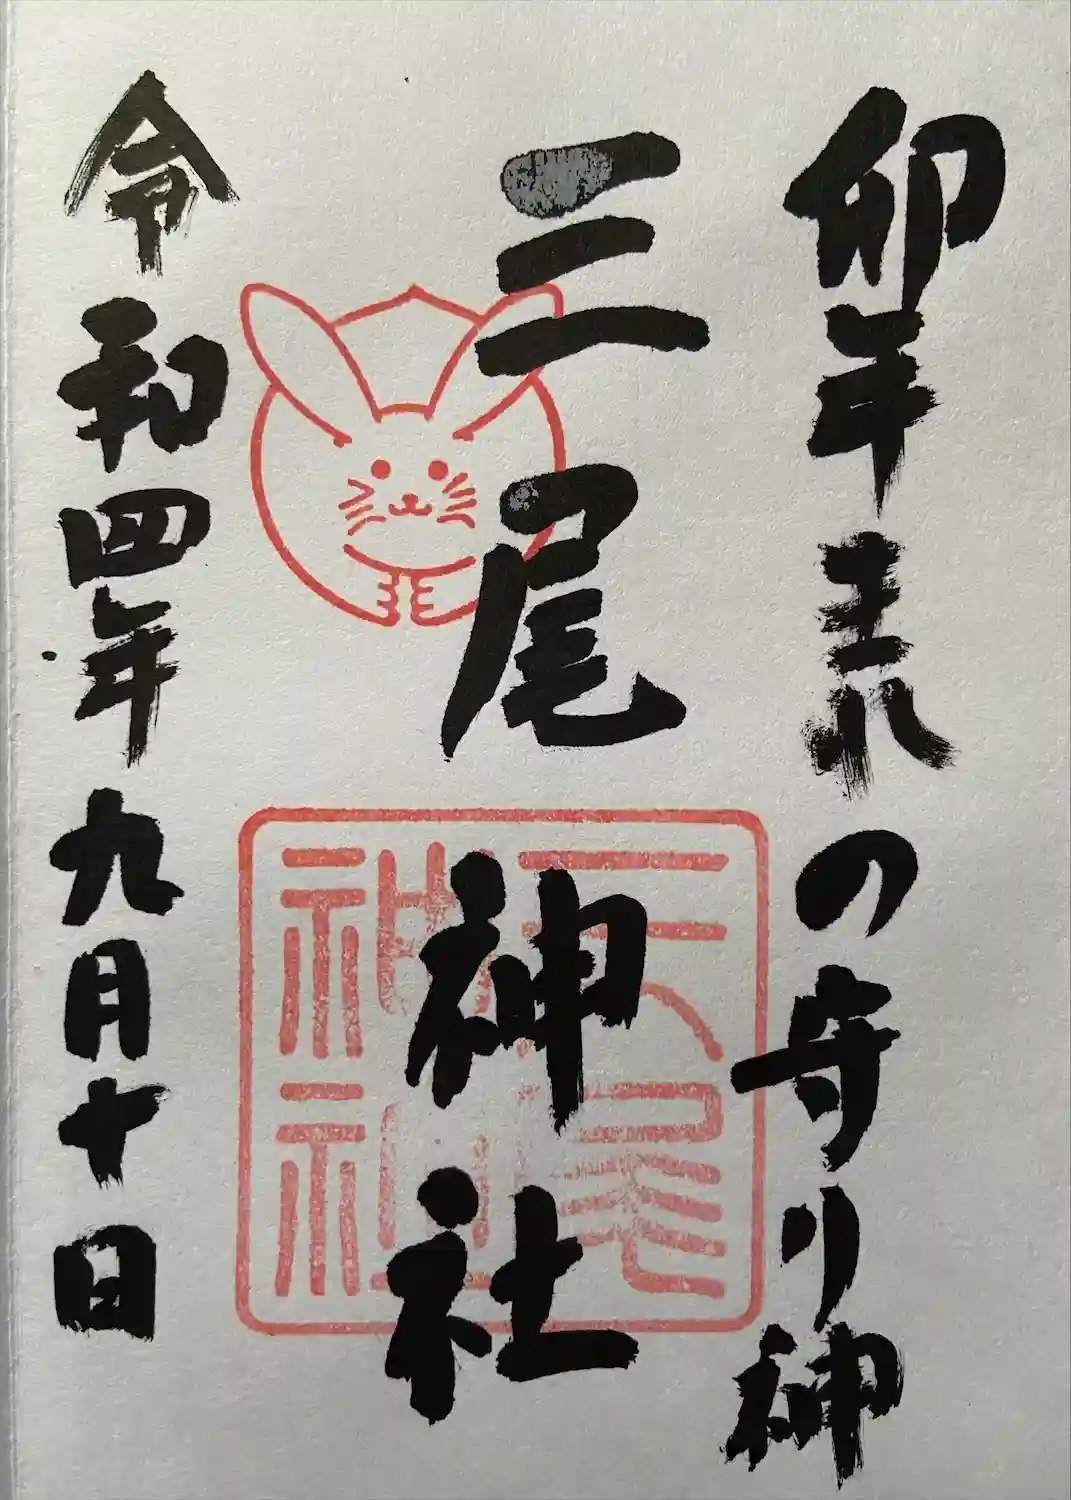 卯年生まれの守り神
三尾神社
令和四年九月十日
三尾
神社